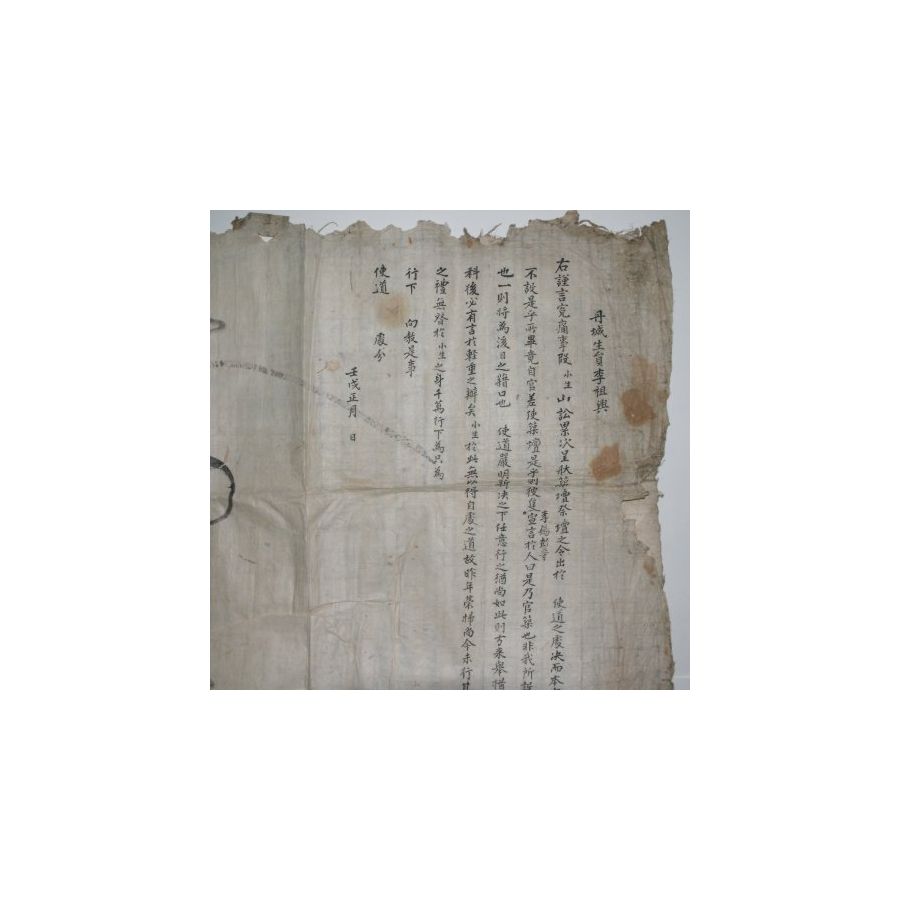 丹城生員李祖興
右謹言寃痛事段小生山訟累次呈狀築壇祭壇之令出於 使道之處决而本
不設是乎所畢竟自官差使築壇是乎則彼隻宣言於人曰是乃官築也非我所設
李錫
也一則將為後日之藉口也 使道嚴明斷决之下任意行之猶尚如此則方來舉措
科後必有言於輕重之辦矣小生於此無以得自處之道故昨年榮掃尚今未行
之禮無督於小生之身千萬行下為只為
行下 向教是事
使道 處分
壬戌正月 日